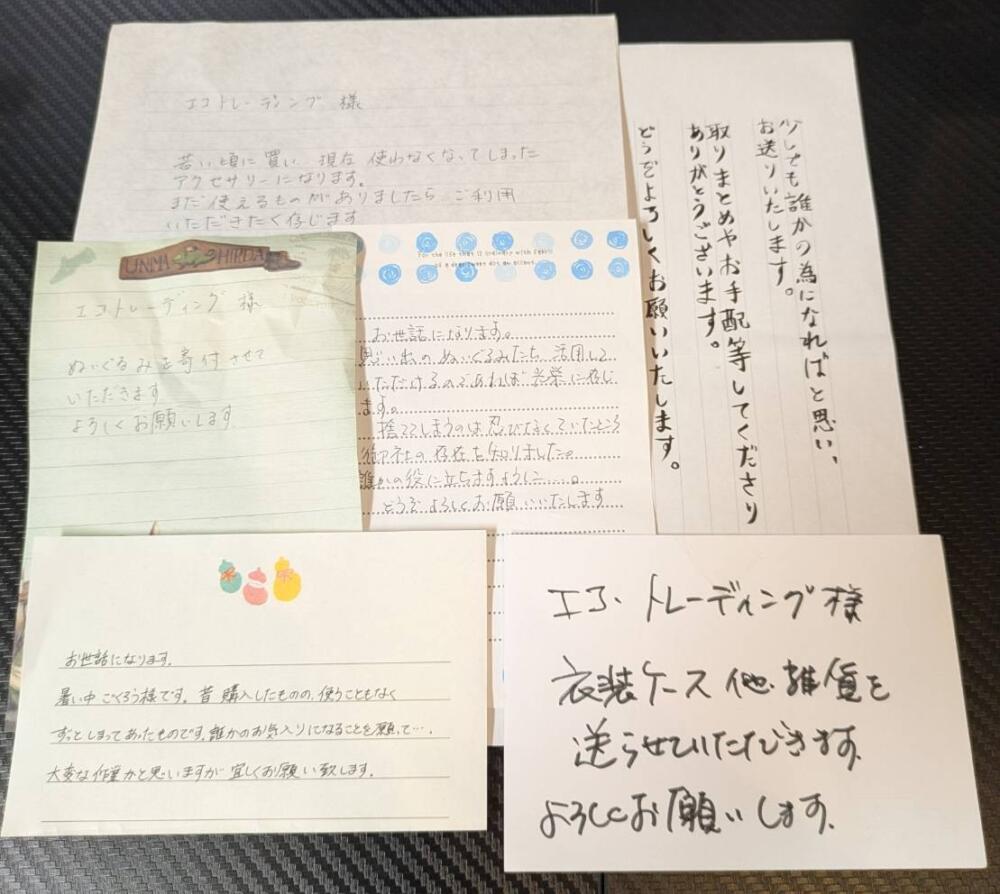 エコトレーディング 様
若い頃に買い 現在 使わなくなってしまった
アクセサリーになります。
まだ使えるものがありましたら ご利用
いただきたく存じます
少しでも誰かの為になればと思い、
お送りいたします。
取りまとめやお手配等してくださり
ありがとうございます。
どうぞよろしくお願いいたします。
UNMA HIRDA
エコトレーディング 様
ぬいぐるみを寄付させて
いただきます
よろしくお願いします
For the life that is
お世話になります。
思い出のぬいぐるみたち 活用して
いただけるのであれば 光栄に存じ
ます。
捨ててしまうのは忍びなくていたところ
御社の存在を知りました。
誰かの役に立ちますように…。
どうぞよろしくお願いいたします
お世話になります。
暑い中ごくろう様です。昔購入したものの、使うこともなく
ずっとしまってあったものです。誰かのお気入りになることを願って…。
大変な作業かと思いますが宜しくお願い致します。
エコ・トレーディング様
衣装ケース他雑貨を
送らせていただきます。
よろしくお願いします。